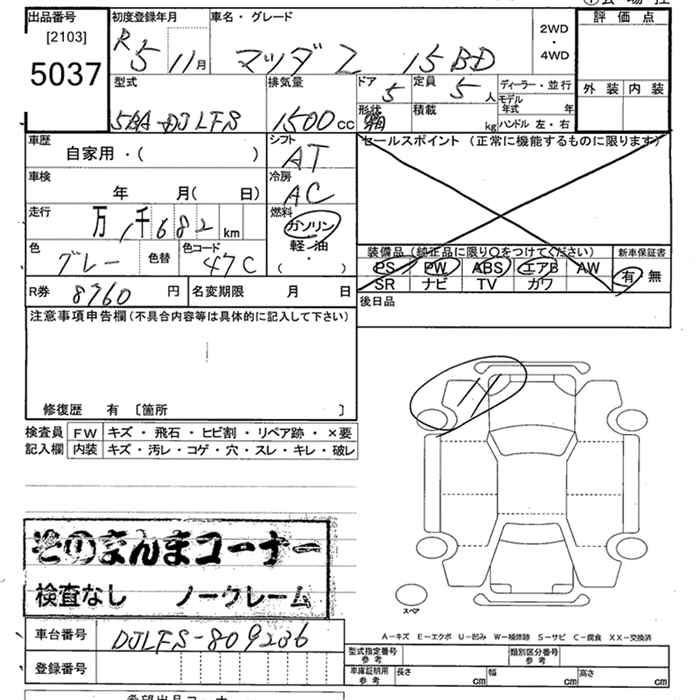 出品番号 初度登録年月 車名・グレード 評価点
[2103] R5 11月 マツダ2 15BD 2WD・4WD
5037
型式 排気量 ドア 定員 ディーラー・並行 外装 内装
5 5人 モデル年式 年
5BA-DJLFS 1500cc 形状 積載 kg ハンドル 左・右
車歴 シフト セールスポイント (正常に機能するものに限ります)
自家用・( ) AT
車検 冷房
年 月( 日) AC
走行 燃料
万 1千682km ガソリン
軽・油
( ・ )
色 グレー 色替 色コード 47C
装備品 (純正品に限り○をつけてください) 新車保証書
PS PW ABS エアB AW 有・無
SR ナビ TV カワ
R券 8760円 名変期限 月 日 後日品
注意事項申告欄(不具合内容等は具体的に記入して下さい)
修復歴 有 〔箇所 〕
検査員 FW キズ・飛石・ヒビ割・リペア跡・×要
記入欄 内装 キズ・汚レ・コゲ・穴・スレ・キレ・破レ
そのまんまコーナー
検査なし ノークレーム
スペア
A-キズ E-エクボ U-凹み W-補修跡 S-サビ C-腐食 XX-交換済
車台番号 DJLFS-809236
型式指定番号 参考 類別区分番号 参考
登録番号
車庫証明用 参考 長さ cm 幅 cm 高さ cm
希望出品コーナー